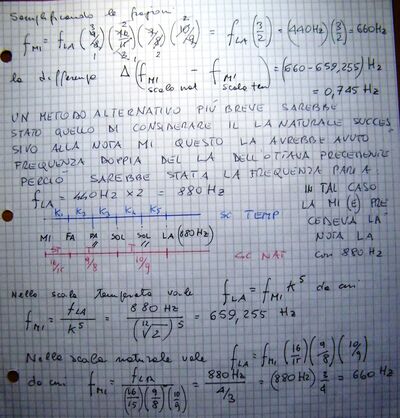 Semplificando le frazioni
f MI = f LA (9/8)(16/15)(9/8)(10/9) = f LA (3/2) = (440Hz)(3/2) = 660Hz
la differenza Δ(f MI scala nat - f MI scala tem) = (660 - 659,255) Hz =
= 0,745 Hz
UN METODO ALTERNATIVO PIÚ BREVE SAREBBE
STATO QUELLO DI CONSIDERARE IL LA NATURALE SUCCES
SIVO ALLA NOTA MI QUESTO LA AVREBBE AVUTO
FREQUENZA DOPPIA DEL LA DELL'OTTAVA PRECEDENTE
PERCIÓ SAREBBE STATA LA FREQUENZA PARI A
f LA = 440Hz × 2 = 880 Hz
IN TAL CASO
LA MI (E) PRE
CEDEVA LA
NOTA LA
con 880 Hz
K1 K2 K3 K4 K5 SC TEMP
MI FA FA # SOL SOL # LA (880Hz)
ST T T SC NAT
16/15 9/8 10/9
Nella scala temperata vale f LA = f MI K^5 da cui
f MI = f LA / K^5 = 880 Hz / (12√2)^5 = 659,255 Hz
Nella scala naturale vale f LA = f MI (16/15)(9/8)(10/9)
da cui f MI = f LA / (16/15)(9/8)(10/9) = 880Hz / 4/3 = (880Hz) 3/4 = 660 Hz